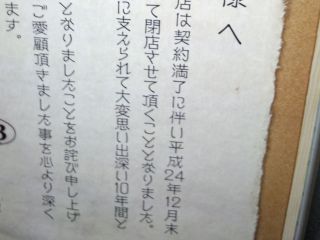 様へ
店は契約満了に伴い平成24年12月末
て閉店させて頂くこととなりました。
に支えられて大変思い出深い10年間と
となりましたことをお詫び申し上げ
ご愛顧頂きました事を心より深く
ます。